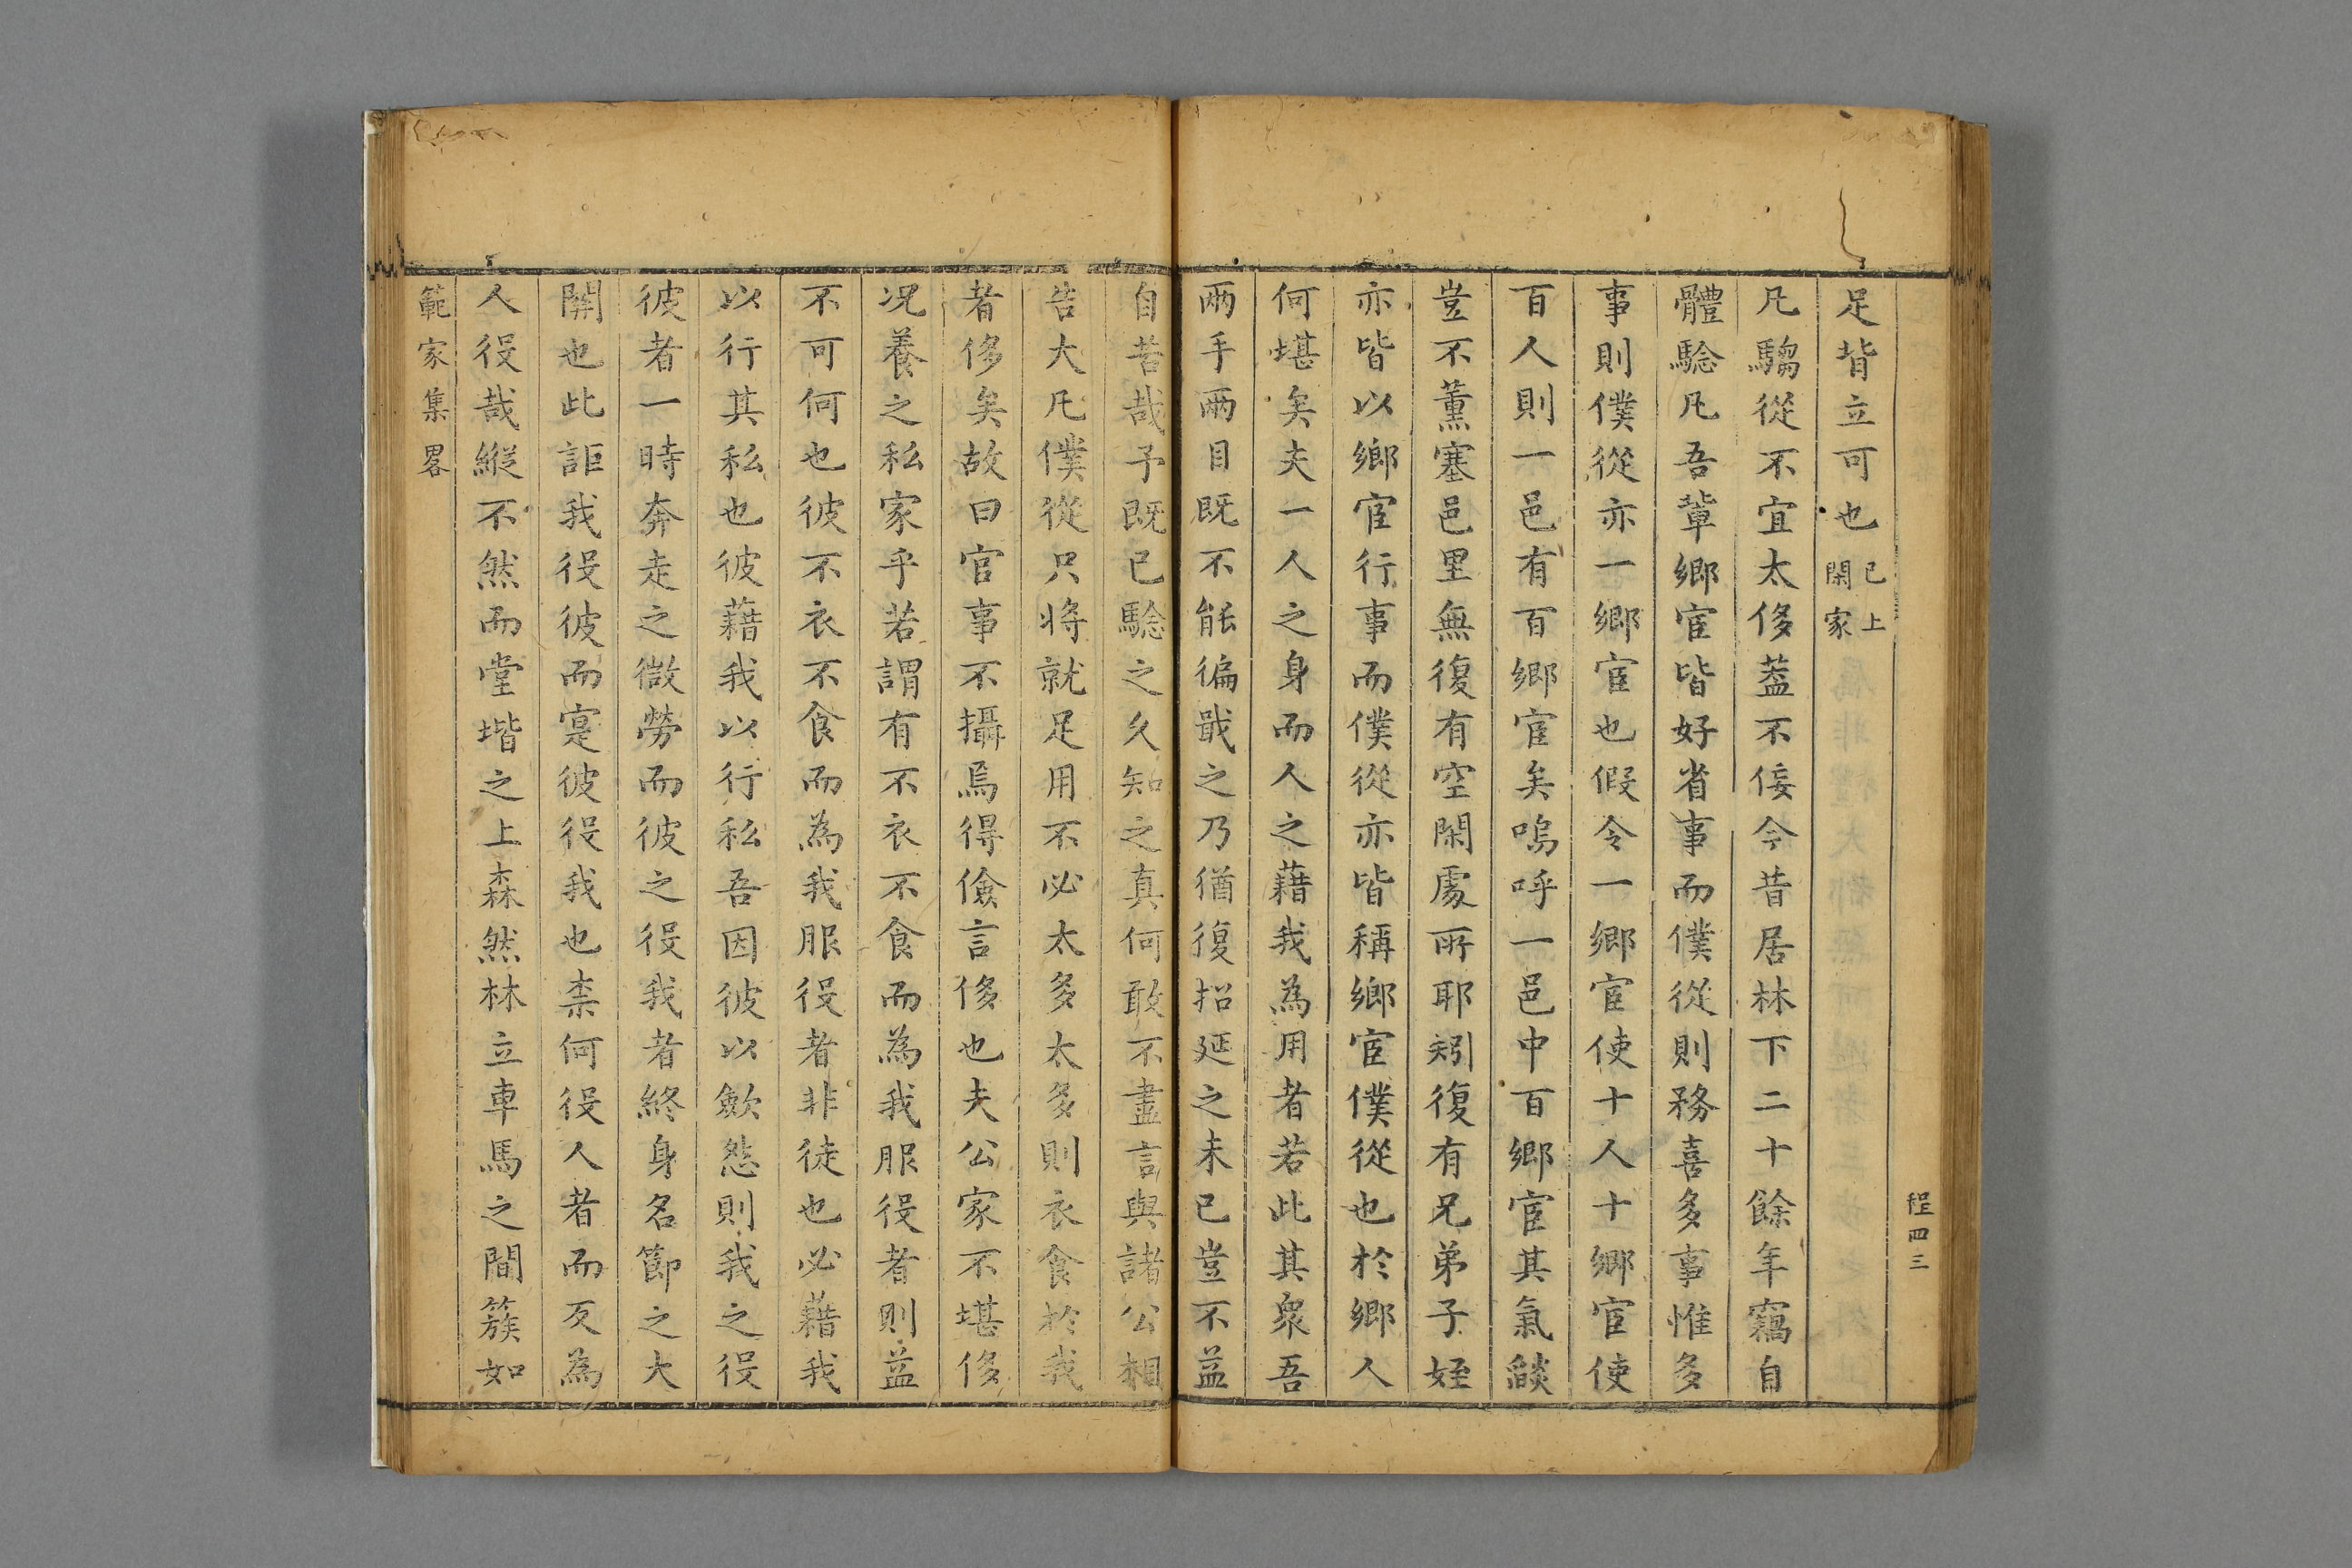 程四三
足背立可也已上閑家
凡騶從不宜太侈葢不佞今昔居林下二十餘年竊自
體騐凡吾軰鄉宦皆好省事而僕從則務喜多事惟多
事則僕從亦一鄉宦也假令一鄉宦使十人十鄉宦使
百人則一邑有百鄉宦矣嗚呼一邑中百鄉宦其氣燄
豈不薰塞邑里無復有空閑處所耶矧復有兄弟子姪
亦皆以鄉宦行事而僕從亦皆稱鄉宦僕從也於鄉人
何堪矣夫一人之身而人之藉我為用者若此其衆吾
兩手兩目既不能徧戢之乃猶復招延之未已豈不益
自苦哉予既已騐之久知之真何敢不盡言與諸公相
告大凡僕從只將就足用不必太多太多則衣食於我
者侈矣故曰官事不攝焉得儉言侈也夫公家不堪侈
况養之私家乎若謂有不衣不食而為我服役者則益
不可何也彼不衣不食而為我服役者非徒也必藉我
以行其私也彼藉我以行私吾因彼以歛怨則我之役
彼者一時奔走之微勞而彼之役我者終身名節之大
關也此詎我役彼而寔彼役我也柰何役人者而反為
人役哉縱不然而堂堦之上森然林立車馬之間簇如
範家集畧